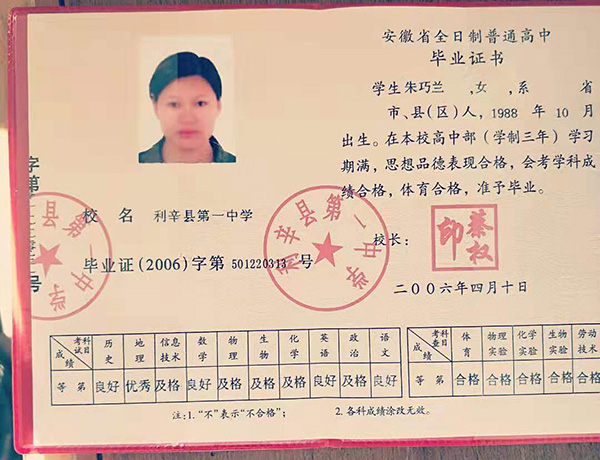 安徽省全日制普通高中
毕业证书
学生朱巧兰 ,女 ,系 省
市、县(区)人,1988 年 10 月
出生。在本校高中部(学制三年)学习
期满,思想品德表现合格,会考学科成
绩合格,体育合格,准予毕业。
校长:
印
权
二〇〇六年四月十日
字第
号
县第一中学
校 名 利辛县第一中学
利辛县第一中学
毕业证(2006)字第 501220313 号
考试科目 历史 地理 信息技术 数学 物理 生物 化学 英语 政治 语文
成绩 等第 良好 优秀 及格 良好 及格 及格 及格 良好 及格 良好
考查科目 体育 物理实验 化学实验 生物实验 劳动技术
成绩 等第 合格 合格 合格 合格 合格
注:1.“不”表示“不合格”; 2.各科成绩涂改无效。